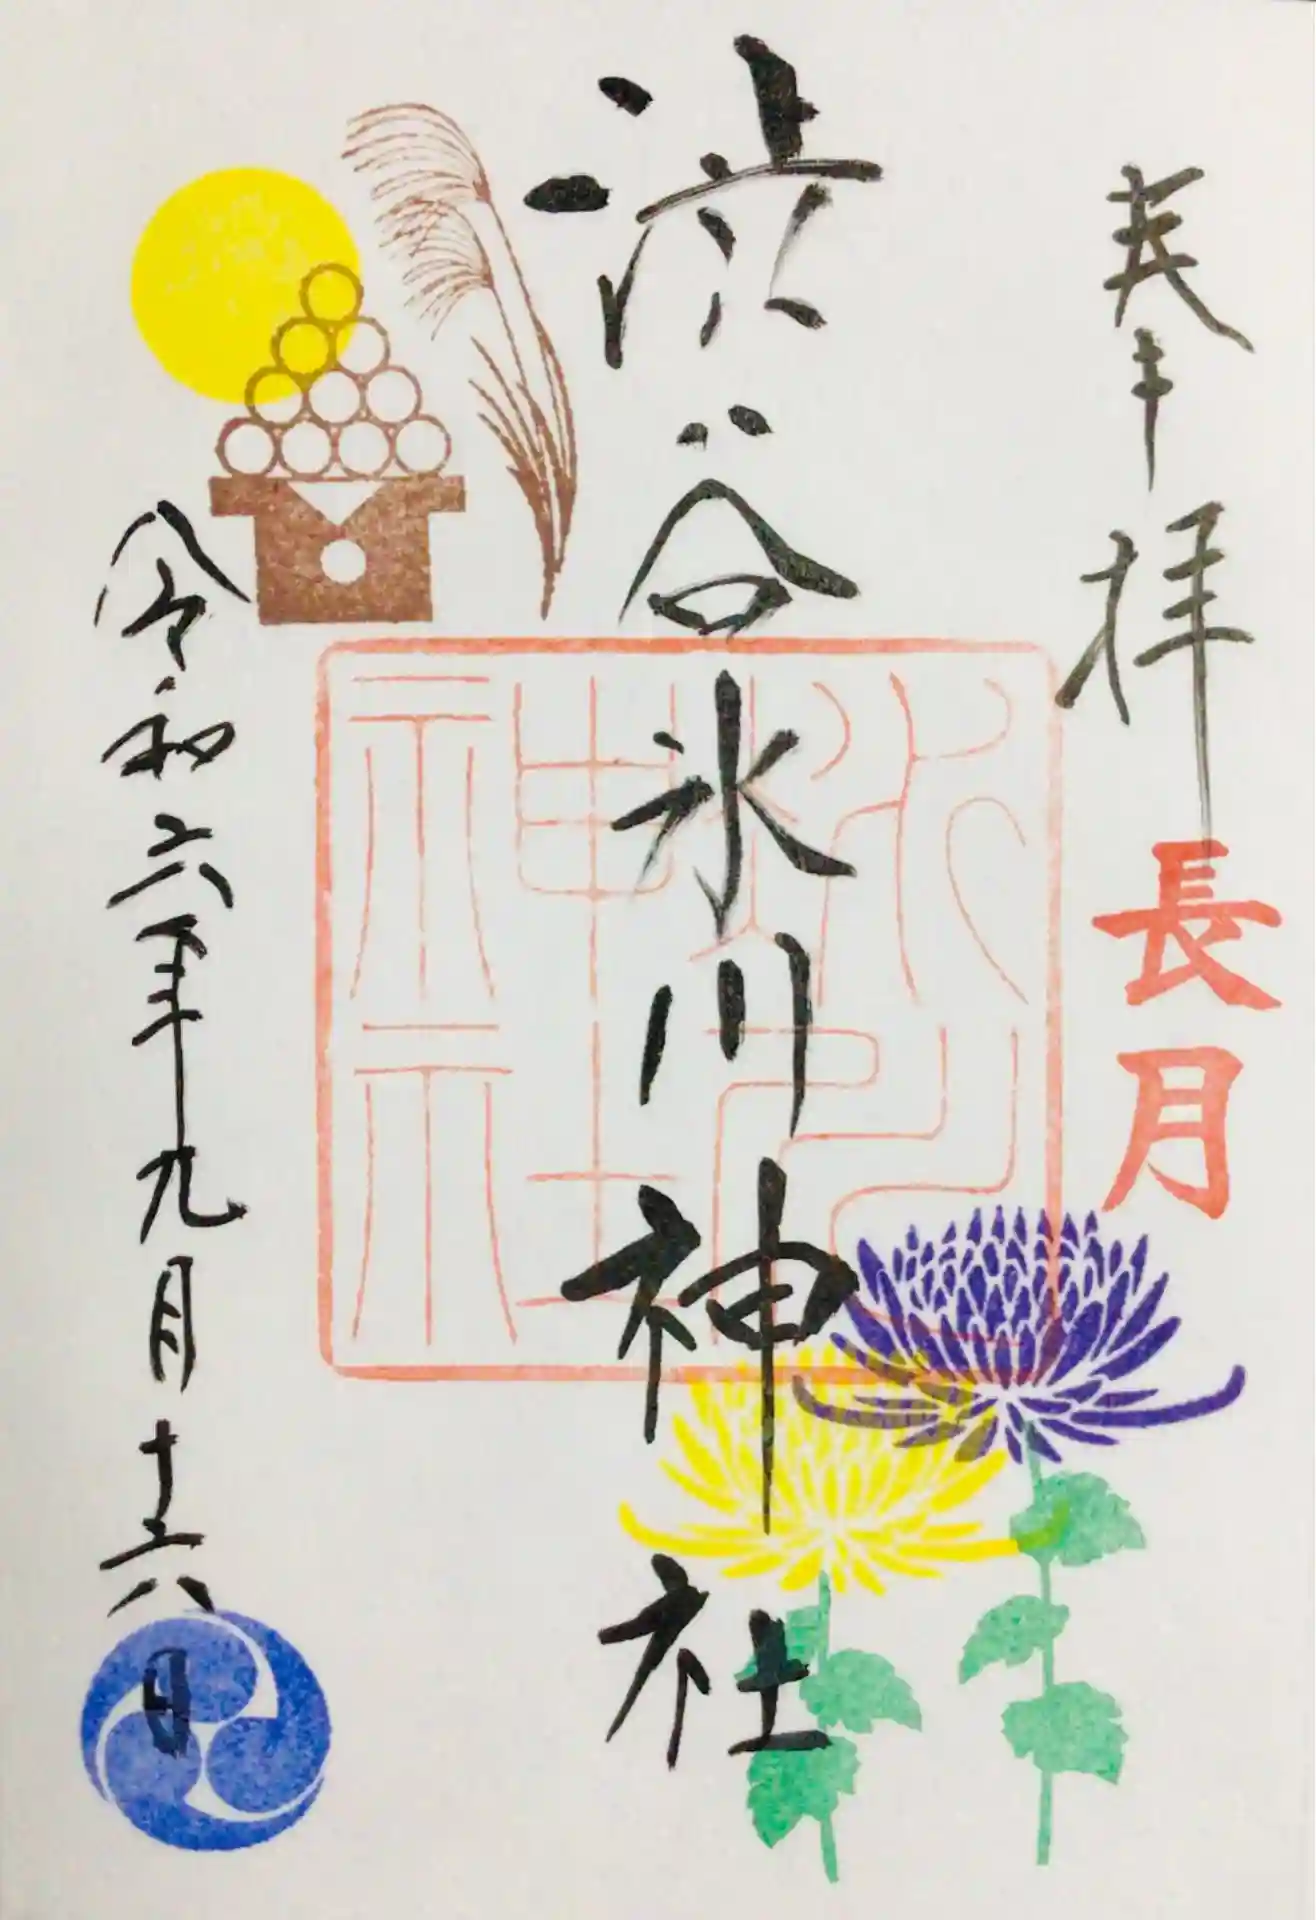 奉拝
長月
渋谷氷川神社
氷川
神社
令和六年九月十六日